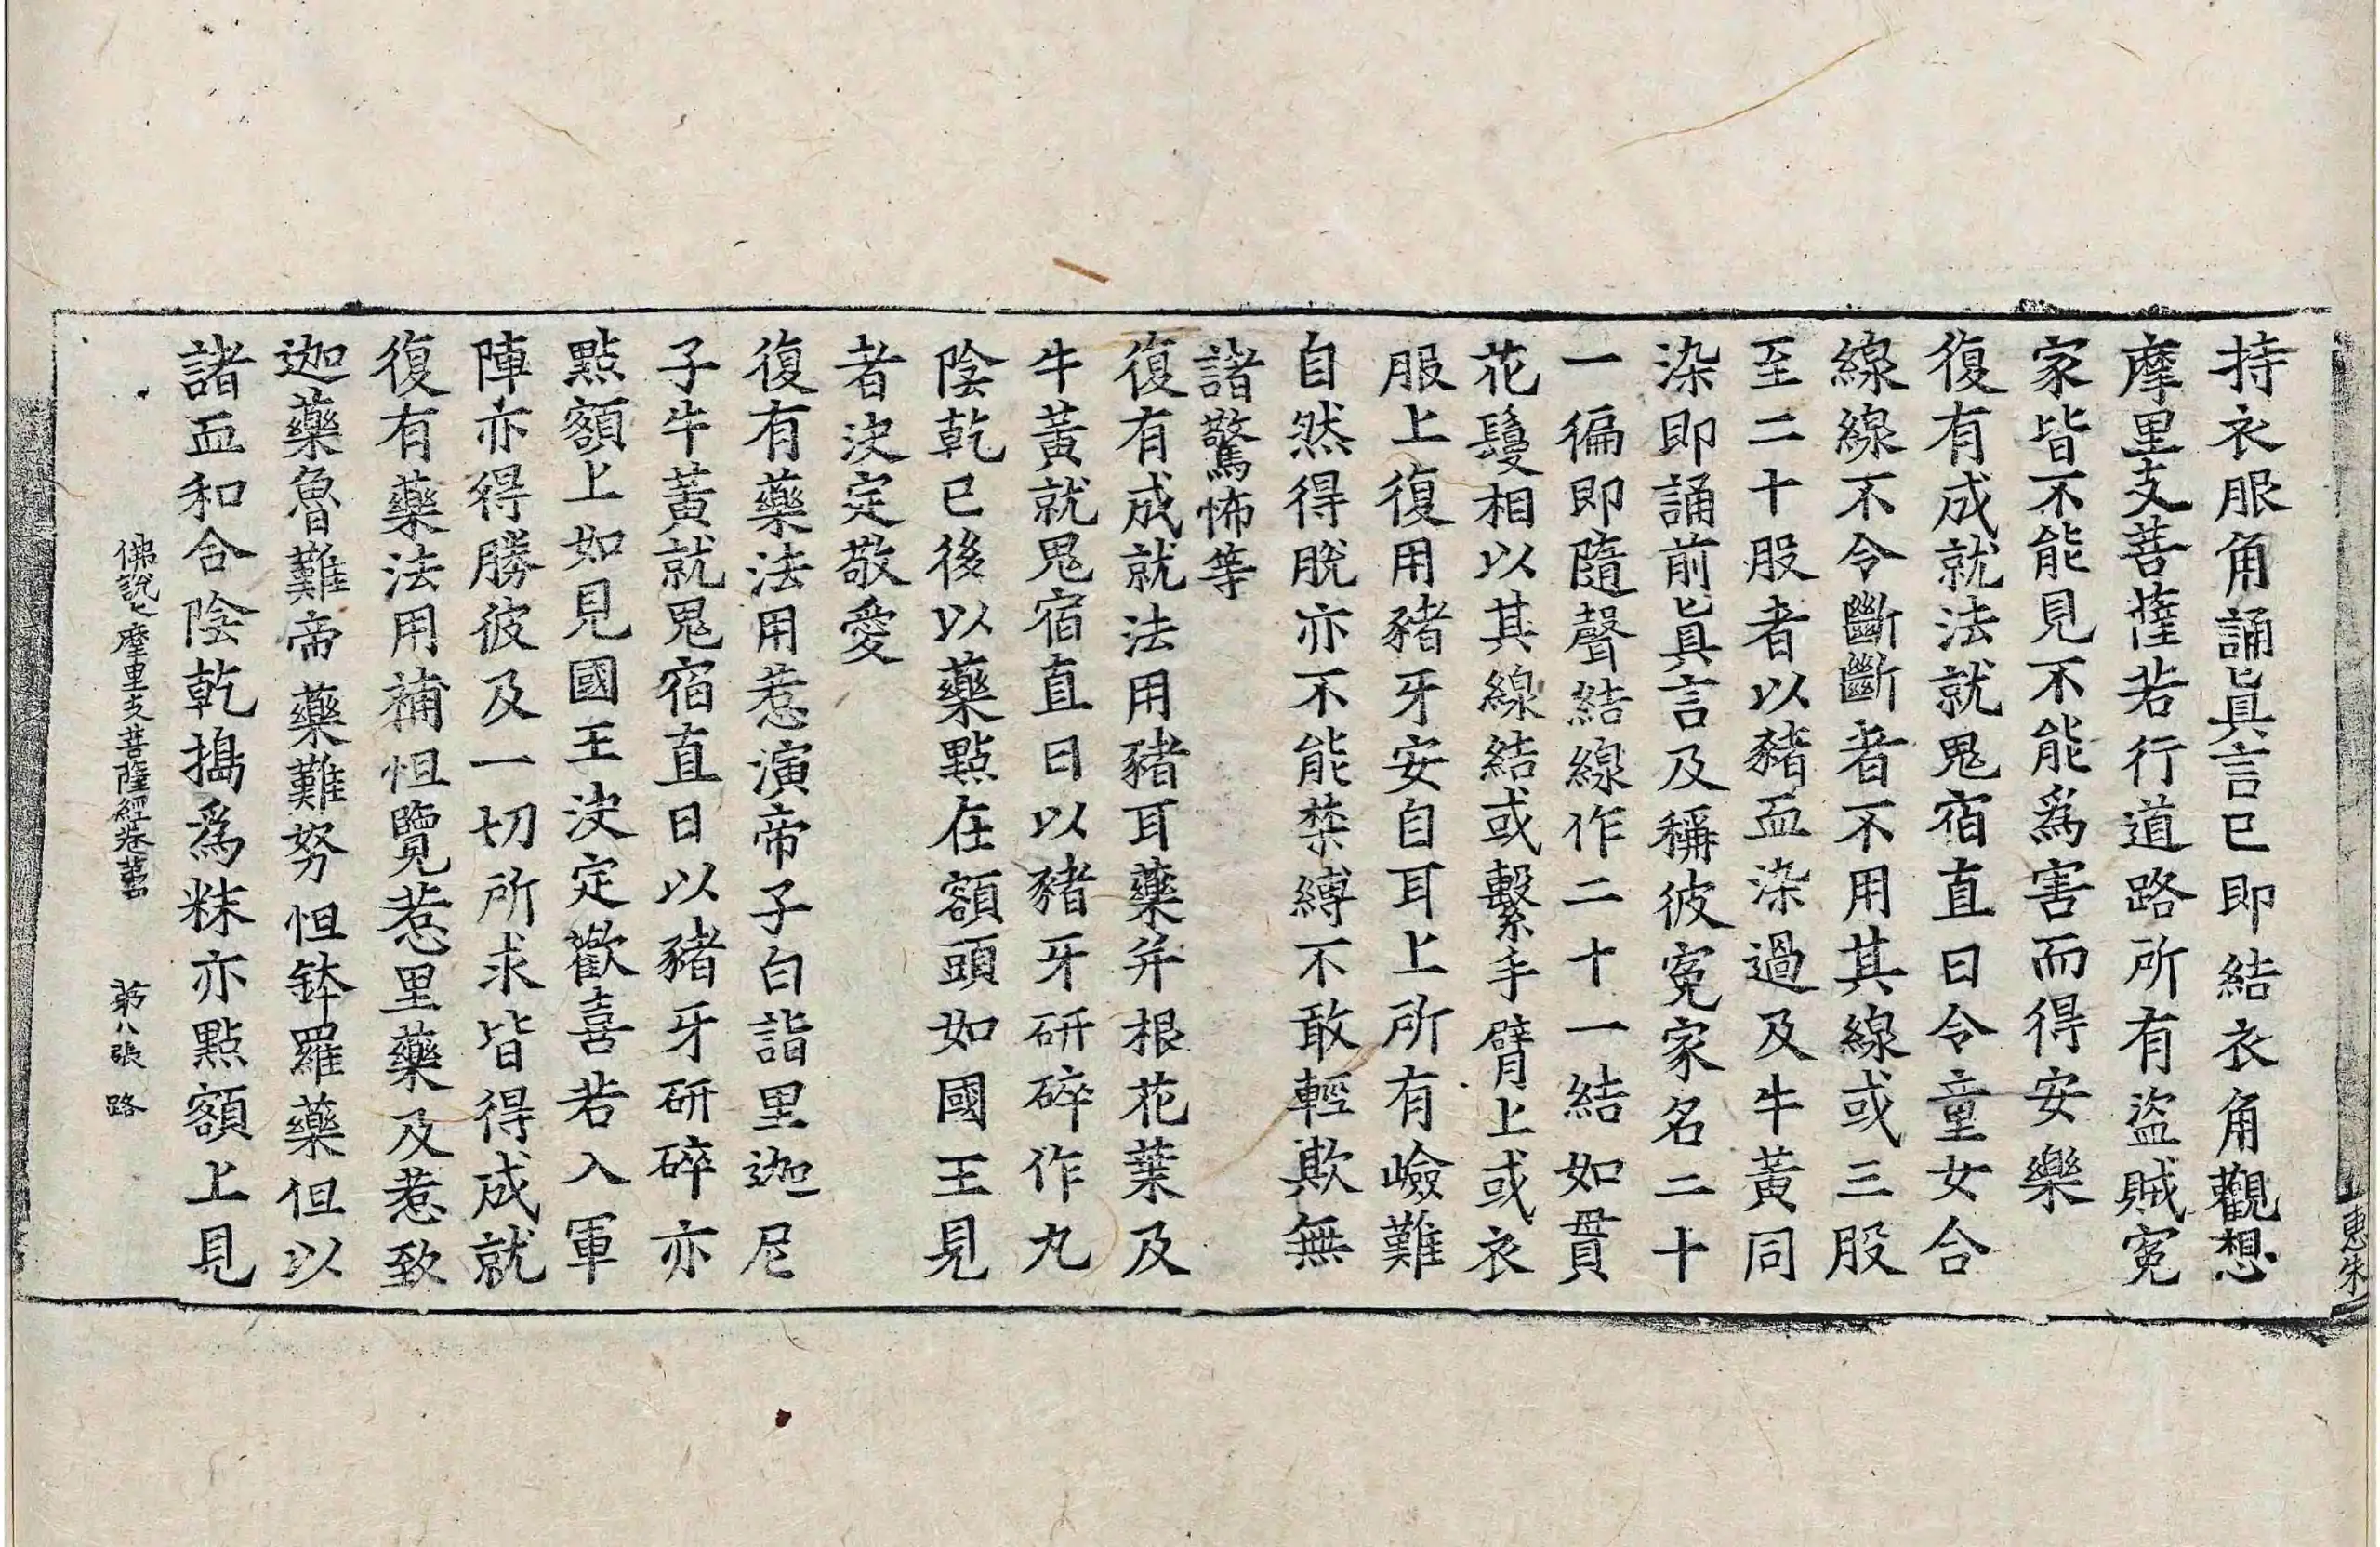 惠朱
持衣服角誦眞言已即結衣角觀想
摩里支菩薩若行道路所有盜賊寃
家皆不能見不能爲害而得安樂
復有成就法就鬼宿直日令童女合
線線不令斷斷者不用其線或三股
至二十股者以豬血染過及牛黃同
染即誦前眞言及稱彼寃家名二十
一徧即隨聲結線作二十一結如貫
花鬘相以其線結或繫手臂上或衣
服上復用豬牙安自耳上所有嶮難
自然得脫亦不能禁縛不敢輕欺無
諸驚怖等
復有成就法用豬耳藥并根花葉及
牛黃就鬼宿直日以豬牙研碎作丸
陰乾已後以藥點在額頭如國王見
者決定敬愛
復有藥法用惹演帝子白詣里迦尼
子牛黃就鬼宿直日以豬牙研碎亦
點額上如見國王決定歡喜若入軍
陣亦得勝彼及一切所求皆得成就
復有藥法用補怛覽惹里藥及惹致
迦藥魯難帝藥難努怛鉢羅藥但以
諸血和合陰乾搗爲粖亦點額上見
佛說摩里支菩薩經卷 第八張 路